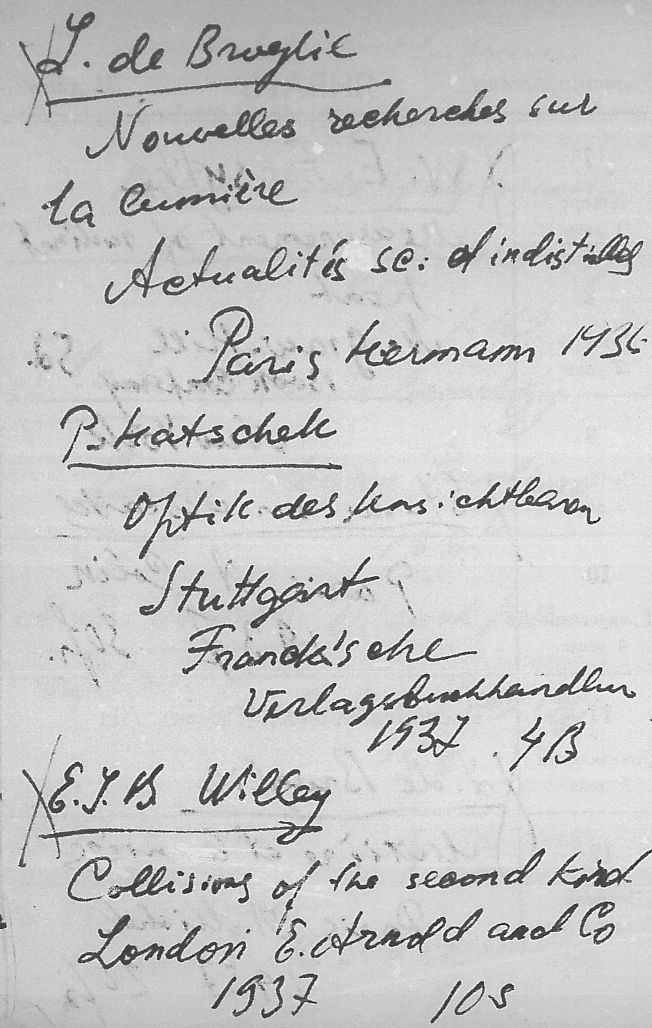 L. de Broglie
Nouvelles recherches sur
la lumière
Actualités sc. d'industrielles
Paris Hermann 1936
P. Hatschek
Optik des Unsichtbaren
Stuttgart
Franckh'sche
Verlagsbuchhandlun
1937. 4 B
E. J. B. Willey
Collisions of the second kind
London E. Arnold and Co
1937 10s